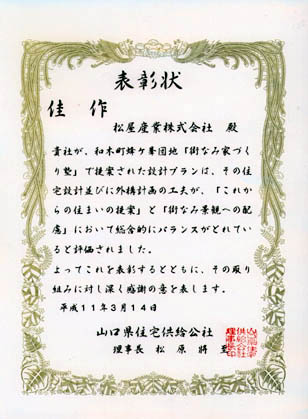 表彰状
佳作
松屋産業株式会社 殿
貴社が、和木町蜂ヶ峯団地「街なみ家づく
り塾」で提案された設計プランは、その住
宅設計並びに外構計画の工夫が、「これか
らの住まいの提案」と「街なみ景観への配
慮」において総合的にバランスがとれてい
ると評価されました。
よってこれを表彰するとともに、その取り
組みに対し深く感謝の意を表します。
平成11年3月14日
山口県住宅供給公社
理事長 松原 將